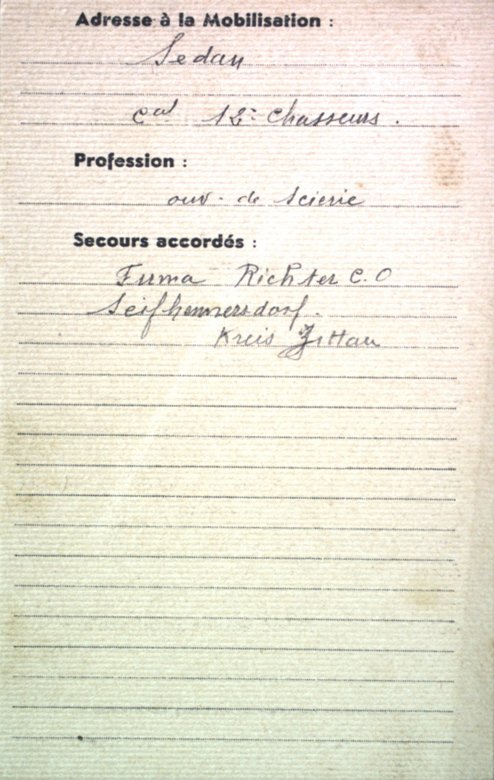 Adresse à la Mobilisation :
Sedan
cal 12e chasseurs.
Profession :
ouv. de scierie
Secours accordés :
Firma Richter C.O
Seifhennersdorf.
Kreis Zittau